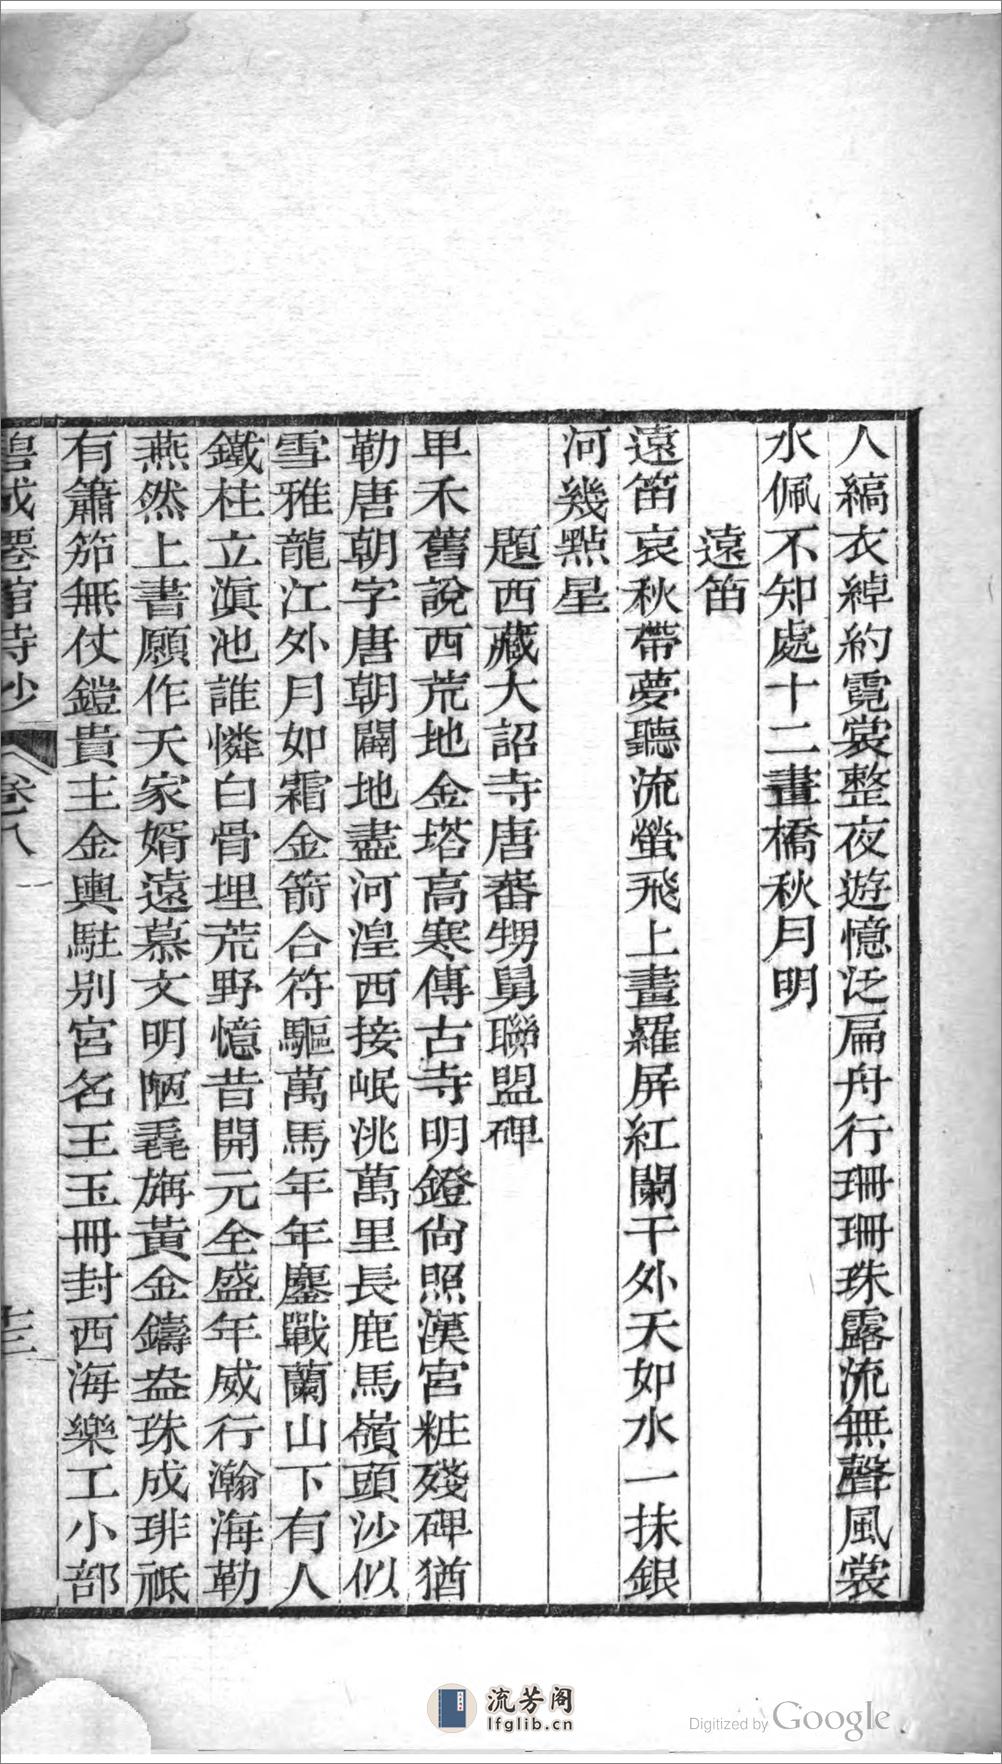 人縞衣綽約霓裳整夜遊憶泛扁舟行珊珊珠露流無聲風裳
水佩不知處十二畫橋秋月明
遠笛
遠笛哀秋帶夢聽流螢飛上畫羅屏紅闌干外天如水一抹銀
河幾點星
題西藏大詔寺唐蕃甥舅聯盟碑
甲禾舊說西荒地金塔高寒傳古寺明鐙尙照漢宮粧殘碑猶
勒唐朝字唐朝闢地盡河湟西接岷洮萬里長鹿馬嶺頭沙似
雪雅龍江外月如霜金箭合符驅萬馬年年鏖戰蘭山下有人
鐵柱立滇池誰憐白骨埋荒野憶昔開元全盛年威行瀚海勒
燕然上書願作天家婿遠慕文明陋毳旃黃金鑄盎珠成琲祗
有簫笳無仗鎧貴主金輿駐别宮名王玉冊封西海樂工小部
碧城僊館詩鈔 卷八 十三
流芳阁
lfglib.cn
Digitized by Google